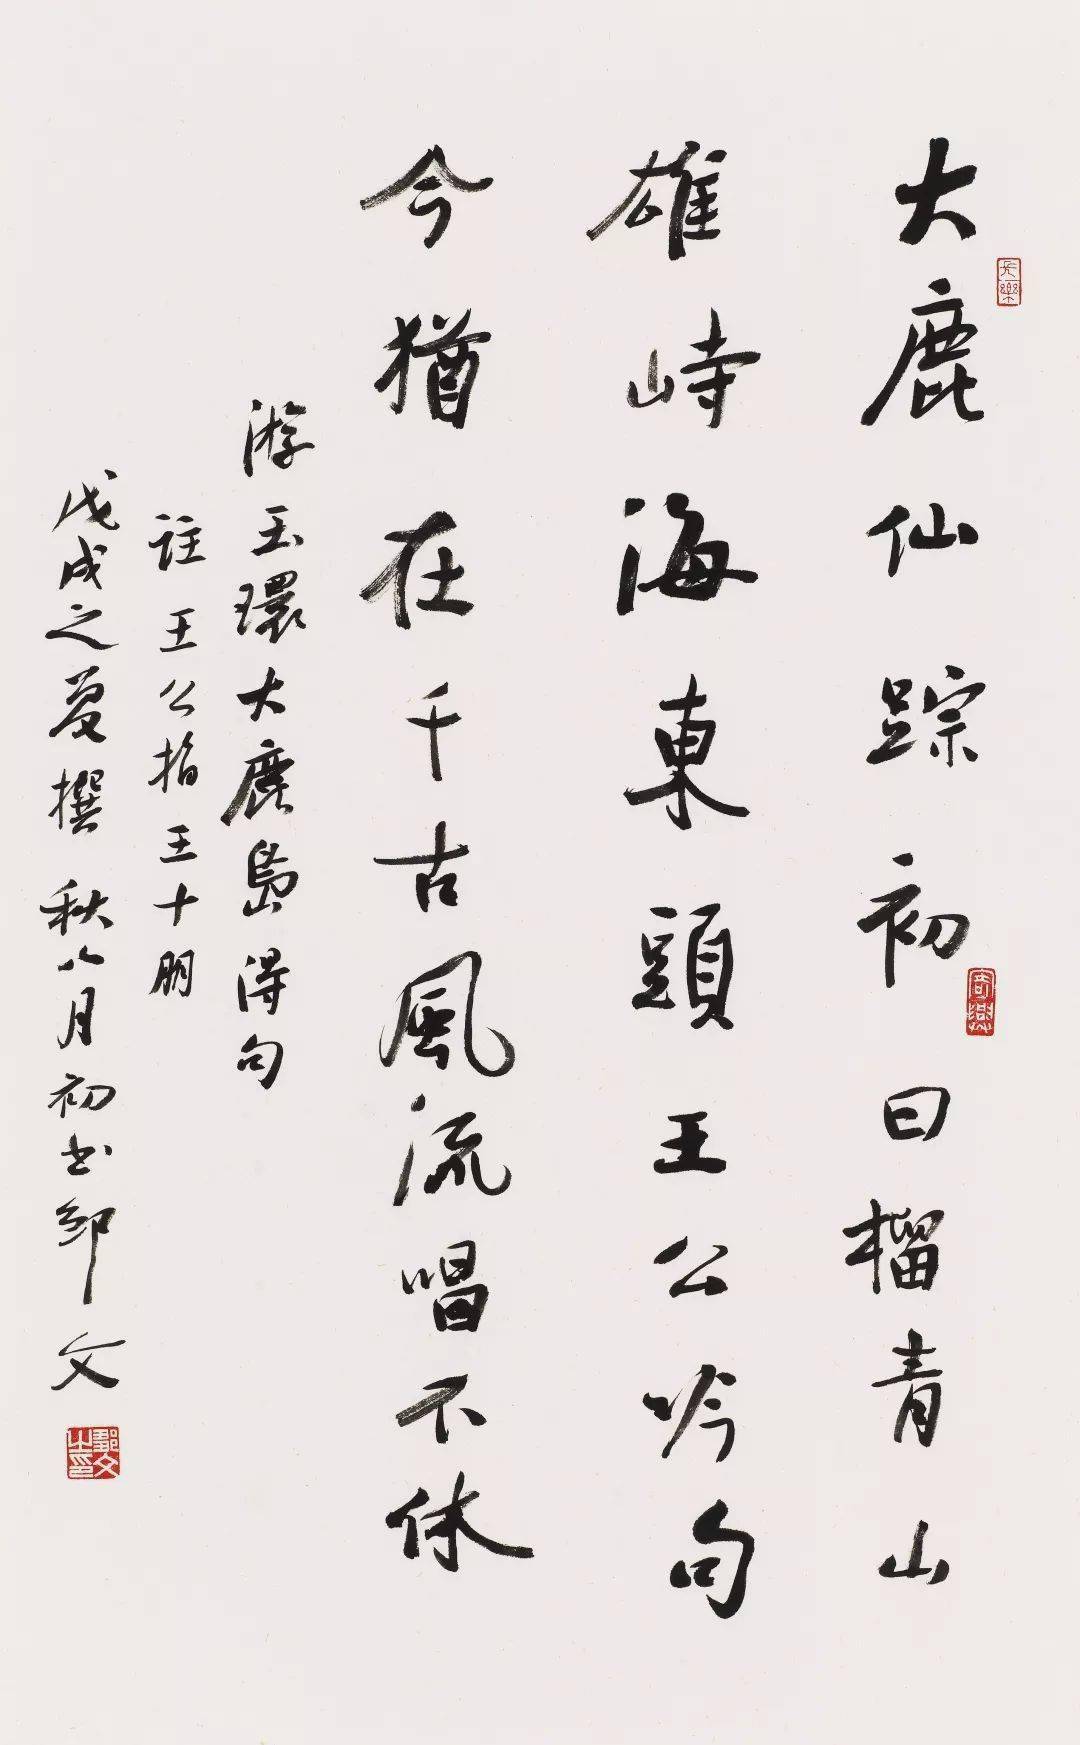 大鹿仙踪初曰榴青山
雄峙海東頭王公吟句
今猶在千古風流唱不休
游玉環大鹿島得句
註王公指王十朋
戊戌之夏撰秋八月初书邹文
長樂
鄒文之印